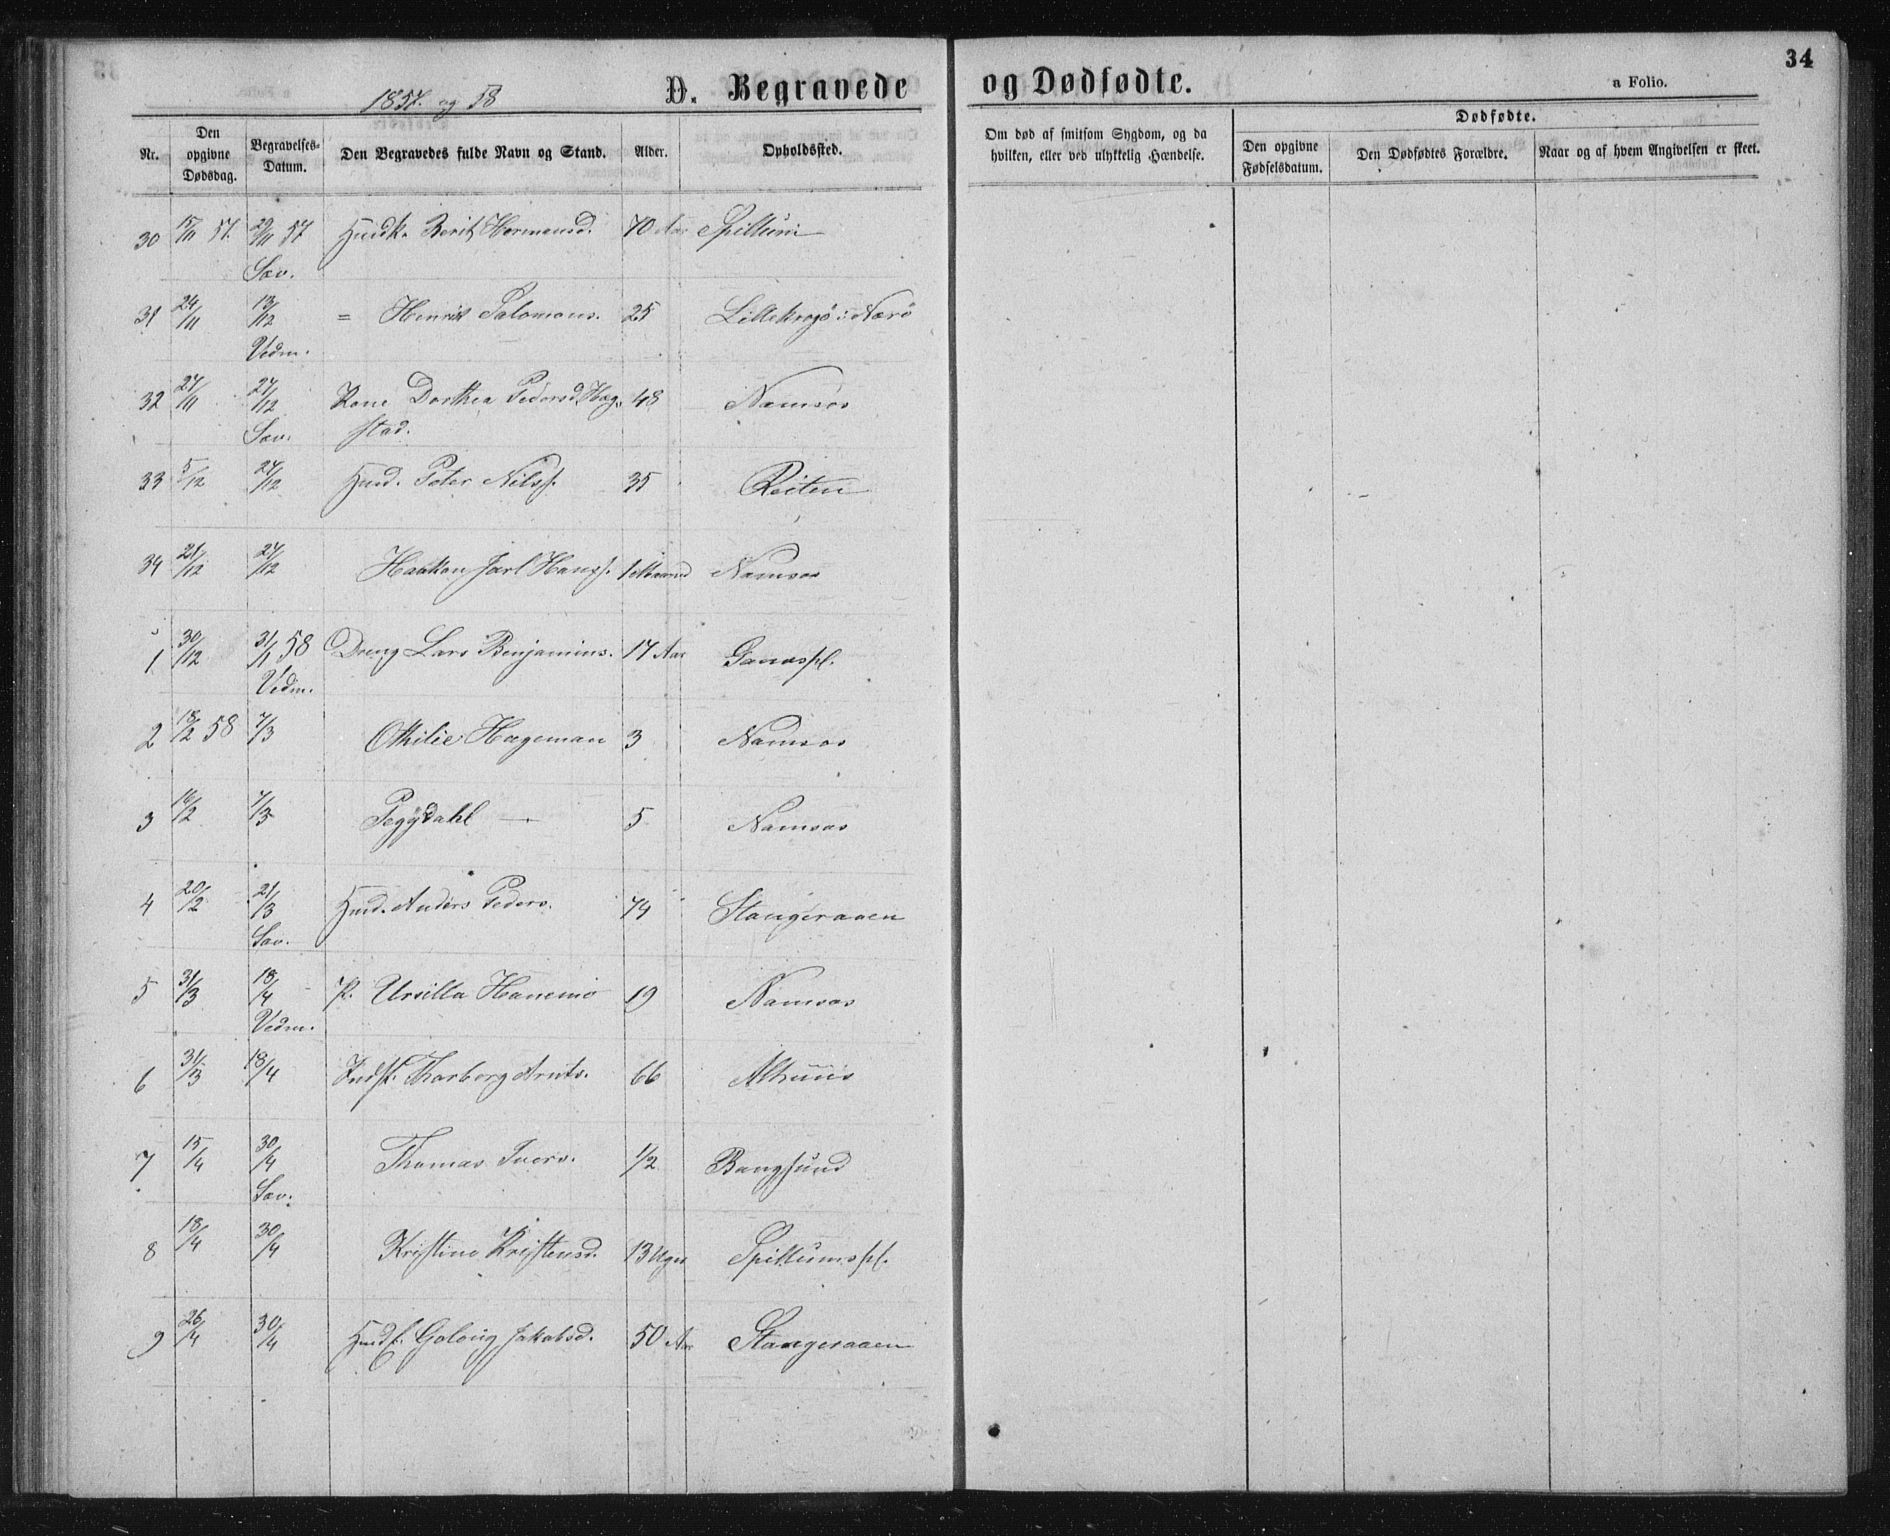 34
1857. og 58
D. Begravede og Dødfødte.
a Folio.
Nr. Den opgivne Dødsdag. Begravelses-Datum. Den Begravedes fulde Navn og Stand. Alder. Opholdssted. Om død af smitsom Sygdom, og da hvilken, eller ved ulykkelig Hændelse. Dødfødte.
Den opgivne Fødselsdatum. Den Dødfødtes Forældre. Naar og af hvem Angivelsen er skeet.
30 15/11 57. 29/11 57 Huusk. Berit Hermansd. 70 Aar Spillum
Sæv.
31 24/11 13/12 = Henrik Salomons. 25 Lillekrogø i Nærø
Vedm.
32 27/11 27/12 Kone Dorthea Pedersd. Hæg- 48 Namsos
Sæv. stad.
33 5/12 27/12 Huusd. Peter Nilss. 35 Reiten
34 21/12 27/12 Haakon Jarl Hanss. 1 Maaned Namsos
1 30/12 31/1 58 Dreng Lars Benjamins. 17 Aar
Vedm.
2 18/2 58 7/3 Othilie Hageman 3 Namsos
3 16/2 7/3 5 Namsos
4 20/2 21/3 Huusd. Anders Peders. 74 Stangeraaen
Sæv.
5 31/3 18/4 P. Ursilla Hanemo 19 Namsos
Vedm.
6 31/3 18/4 Indsk. Thorborg Arnts. 66 Alhuus
7 15/4 30/4 Thomas Ivers. 1/2 Bangsund
Sæv.
8 18/4 30/4 Kristine Kristensd. 13 Uger Spillumspl.
9 26/4 30/4 Jakobsd. 50 Aar Stangeraaen